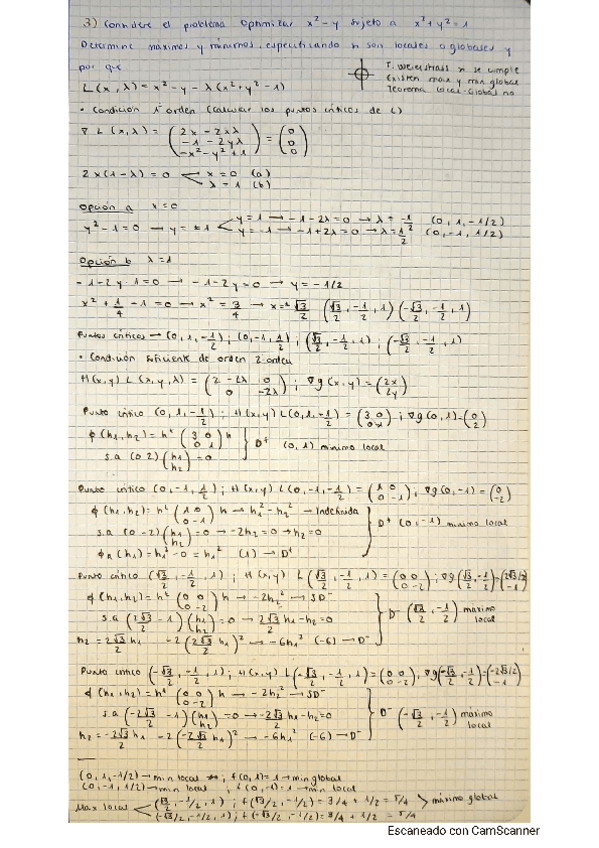 3) Considere el problema Optimizar x² - y sujeto a x² + y² = 1
Determine máximos y mínimos, especificando si son locales o globales y
por que
T. Weierstrass si se cumple
Existen max y min global
Teorema local-global no
L(x, λ) = x² - y - λ(x² + y² - 1)
• Condición 1er orden (calcular los puntos críticos de L)
∇ L(x, λ) = (2x - 2xλ / -1 - 2yλ / -x² - y² + 1) = (0 / 0 / 0)
2x(1 - λ) = 0 x = 0 (a)
λ = 1 (b)
Opción a x = 0
y² - 1 = 0 → y = ±1 y = 1 → -1 - 2λ = 0 → λ = -1/2 (0, 1, -1/2)
y = -1 → -1 + 2λ = 0 → λ = 1/2 (0, -1, 1/2)
Opción b λ = 1
-1 - 2y·1 = 0 → -1 - 2y = 0 → y = -1/2
x² + 1/4 - 1 = 0 → x² = 3/4 → x = ± √3/2 (√3/2, -1/2, 1) (-√3/2, -1/2, 1)
Puntos críticos → (0, 1, -1/2); (0, -1, 1/2); (√3/2, -1/2, 1); (-√3/2, -1/2, 1)
• Condición suficiente de orden 2 orden
H(x,y) L(x, y, λ) = (2 - 2λ 0 / 0 -2λ); ∇g(x,y) = (2x / 2y)
Punto crítico (0, 1, -1/2); H(x,y) L(0, 1, -1/2) = (3 0 / 0 1); ∇g(0,1) = (0 / 2)
ϕ(h1, h2) = hᵗ (3 0 / 0 1) h
s.a (0 2) (h1 / h2) = 0
D⁺ (0, 1) mínimo local
Punto crítico (0, -1, 1/2); H(x,y) L(0, -1, -1/2) = (1 0 / 0 -1), ∇g(0, -1) = (0 / -2)
ϕ(h1, h2) = hᵗ (1 0 / 0 -1) h → h1² - h2² → Indefinida
s.a (0 -2) (h1 / h2) = 0 → -2h2 = 0 → h2 = 0
ϕR(h1) = h1² - 0 = h1² (1) → D⁺
D⁺ (0, -1) mínimo local
Punto crítico (√3/2, -1/2, 1); H(x,y) L(√3/2, -1/2, 1) = (0 0 / 0 -2); ∇g(√3/2, -1/2) = (2√3/2 / -1)
ϕ(h1, h2) = hᵗ (0 0 / 0 -2) h → -2h2² → SD⁻
s.a (2√3/2 -1) (h1 / h2) = 0 → 2√3/2 h1 - h2 = 0
h2 = 2√3/2 h1 -2(2√3/2 h1)² → -6h1² (-6) → D⁻
D⁻ (√3/2, -1/2) máximo local
Punto crítico (-√3/2, -1/2, 1); H(x,y) L(-√3/2, -1/2, 1) = (0 0 / 0 -2), ∇g(-√3/2, -1/2) = (-2√3/2 / -1)
ϕ(h1, h2) = hᵗ (0 0 / 0 -2) h → -2h2² → SD⁻
s.a (-2√3/2 -1) (h1 / h2) = 0 → -2√3/2 h1 - h2 = 0
h2 = -2√3/2 h1 -2(-2√3/2 h1)² → -6h1² (-6) → D⁻
D⁻ (-√3/2, -1/2) máximo local
(0, 1, -1/2) → min local; f(0, 1) = 1 → min global
(0, -1, 1/2) → min local; f(0, -1) = 1 → min local
Max local (√3/2, -1/2, 1); f(√3/2, -1/2) = 3/4 + 1/2 = 5/4
(-√3/2, -1/2, 1); f(-√3/2, -1/2) = 3/4 + 1/2 = 5/4
máximo global
Escaneado con CamScanner